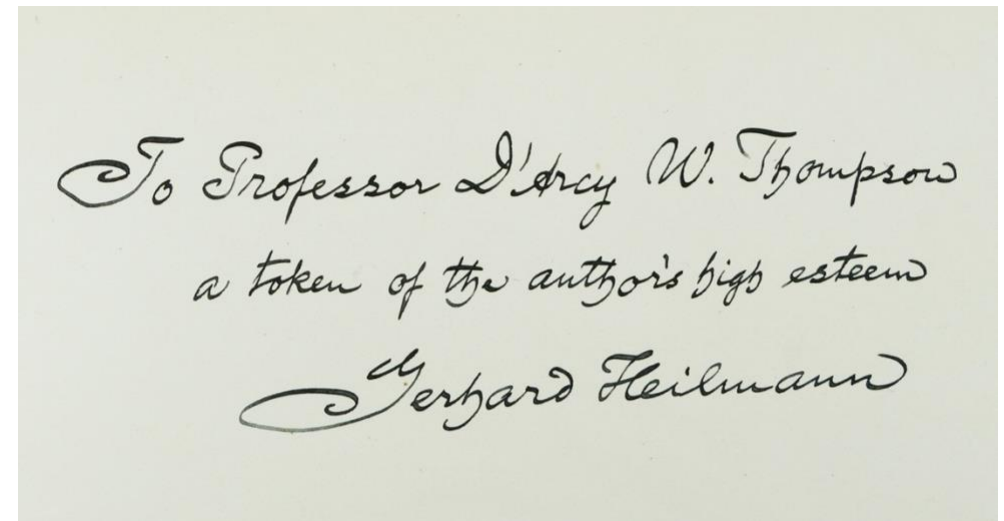 To Professor D'Arcy W. Thompson
a token of the author's high esteem
Gerhard Heilmann